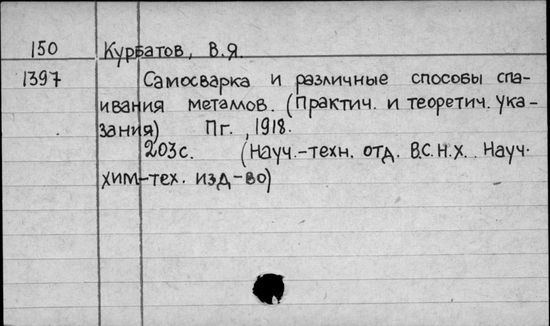 150 Курбатов, В.Я.
1397 Самосварка и различные способы спа-
ивания металлов. (Практич. и теоретич. ука-
зания) Пг., 1918.
203с. (Науч.-техн. отд. В.С.Н.Х. Науч.
хим-тех. изд-во)